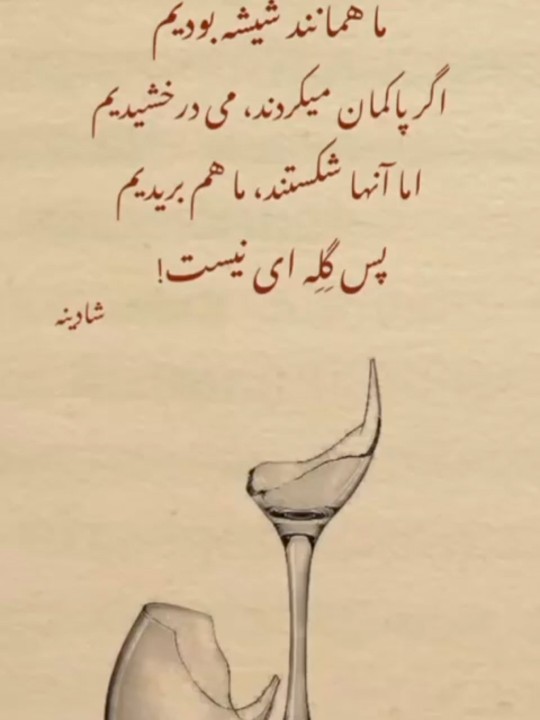 ما همانند شیشه بودیم
اگر پاکمان میکردند، می درخشیدیم
اما آنها شکستند، ما هم بریدیم
پس گِلِه ای نیست!
شادینه